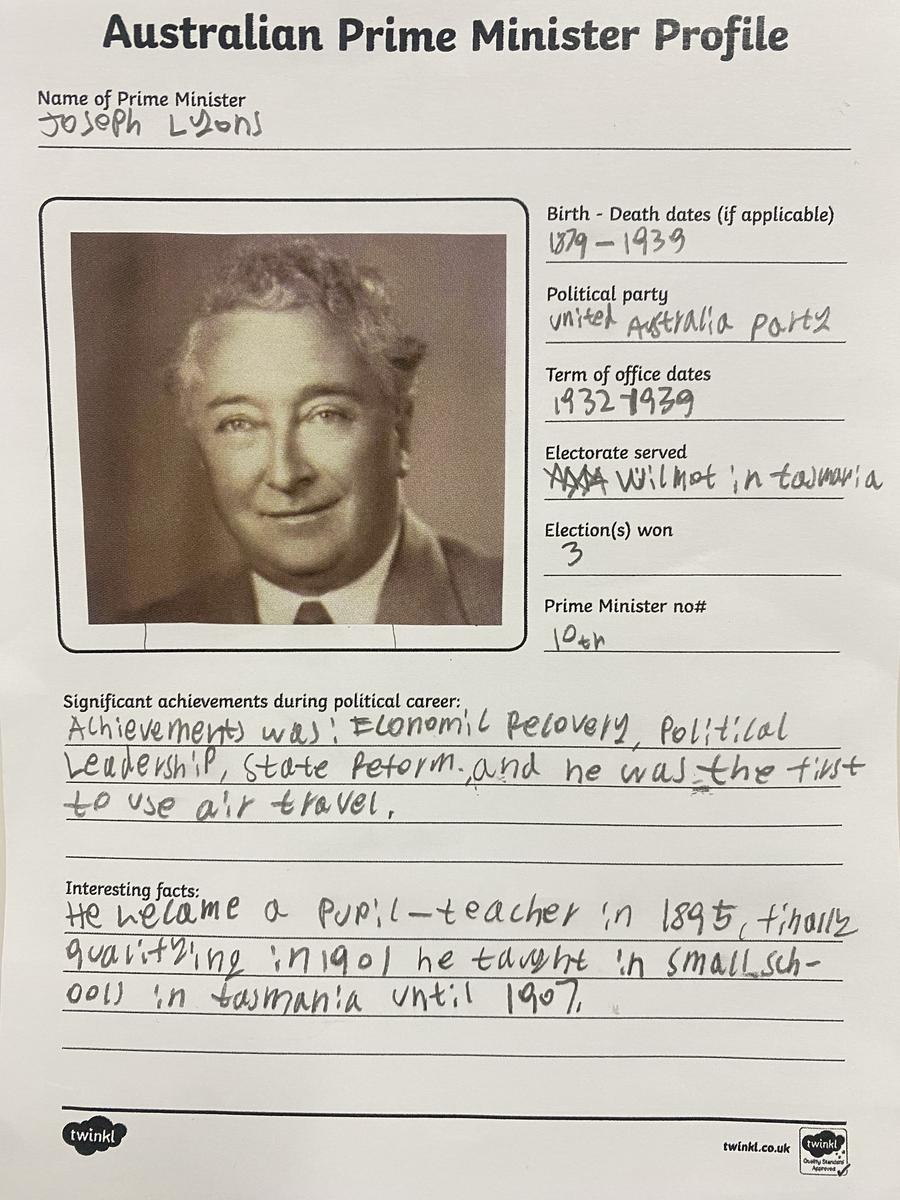 Australian Prime Minister Profile
Name of Prime Minister
Joseph Lyons
Birth - Death dates (if applicable)
1879 - 1939
Political party
united Australia party
Term of office dates
1932-1939
Electorate served
Wilmot in tasmania
Election(s) won
3
Prime Minister no#
10th
Significant achievements during political career:
Achievements was: Economic Recovery, Political
Leadership, State Reform, and he was the first
to use air travel.
Interesting facts:
He became a pupil-teacher in 1895, finally
qualifying in 1901 he taught in small sch-
ools in tasmania until 1907.
twinkl
twinkl.co.uk
twinkl
Quality Standard
Approved